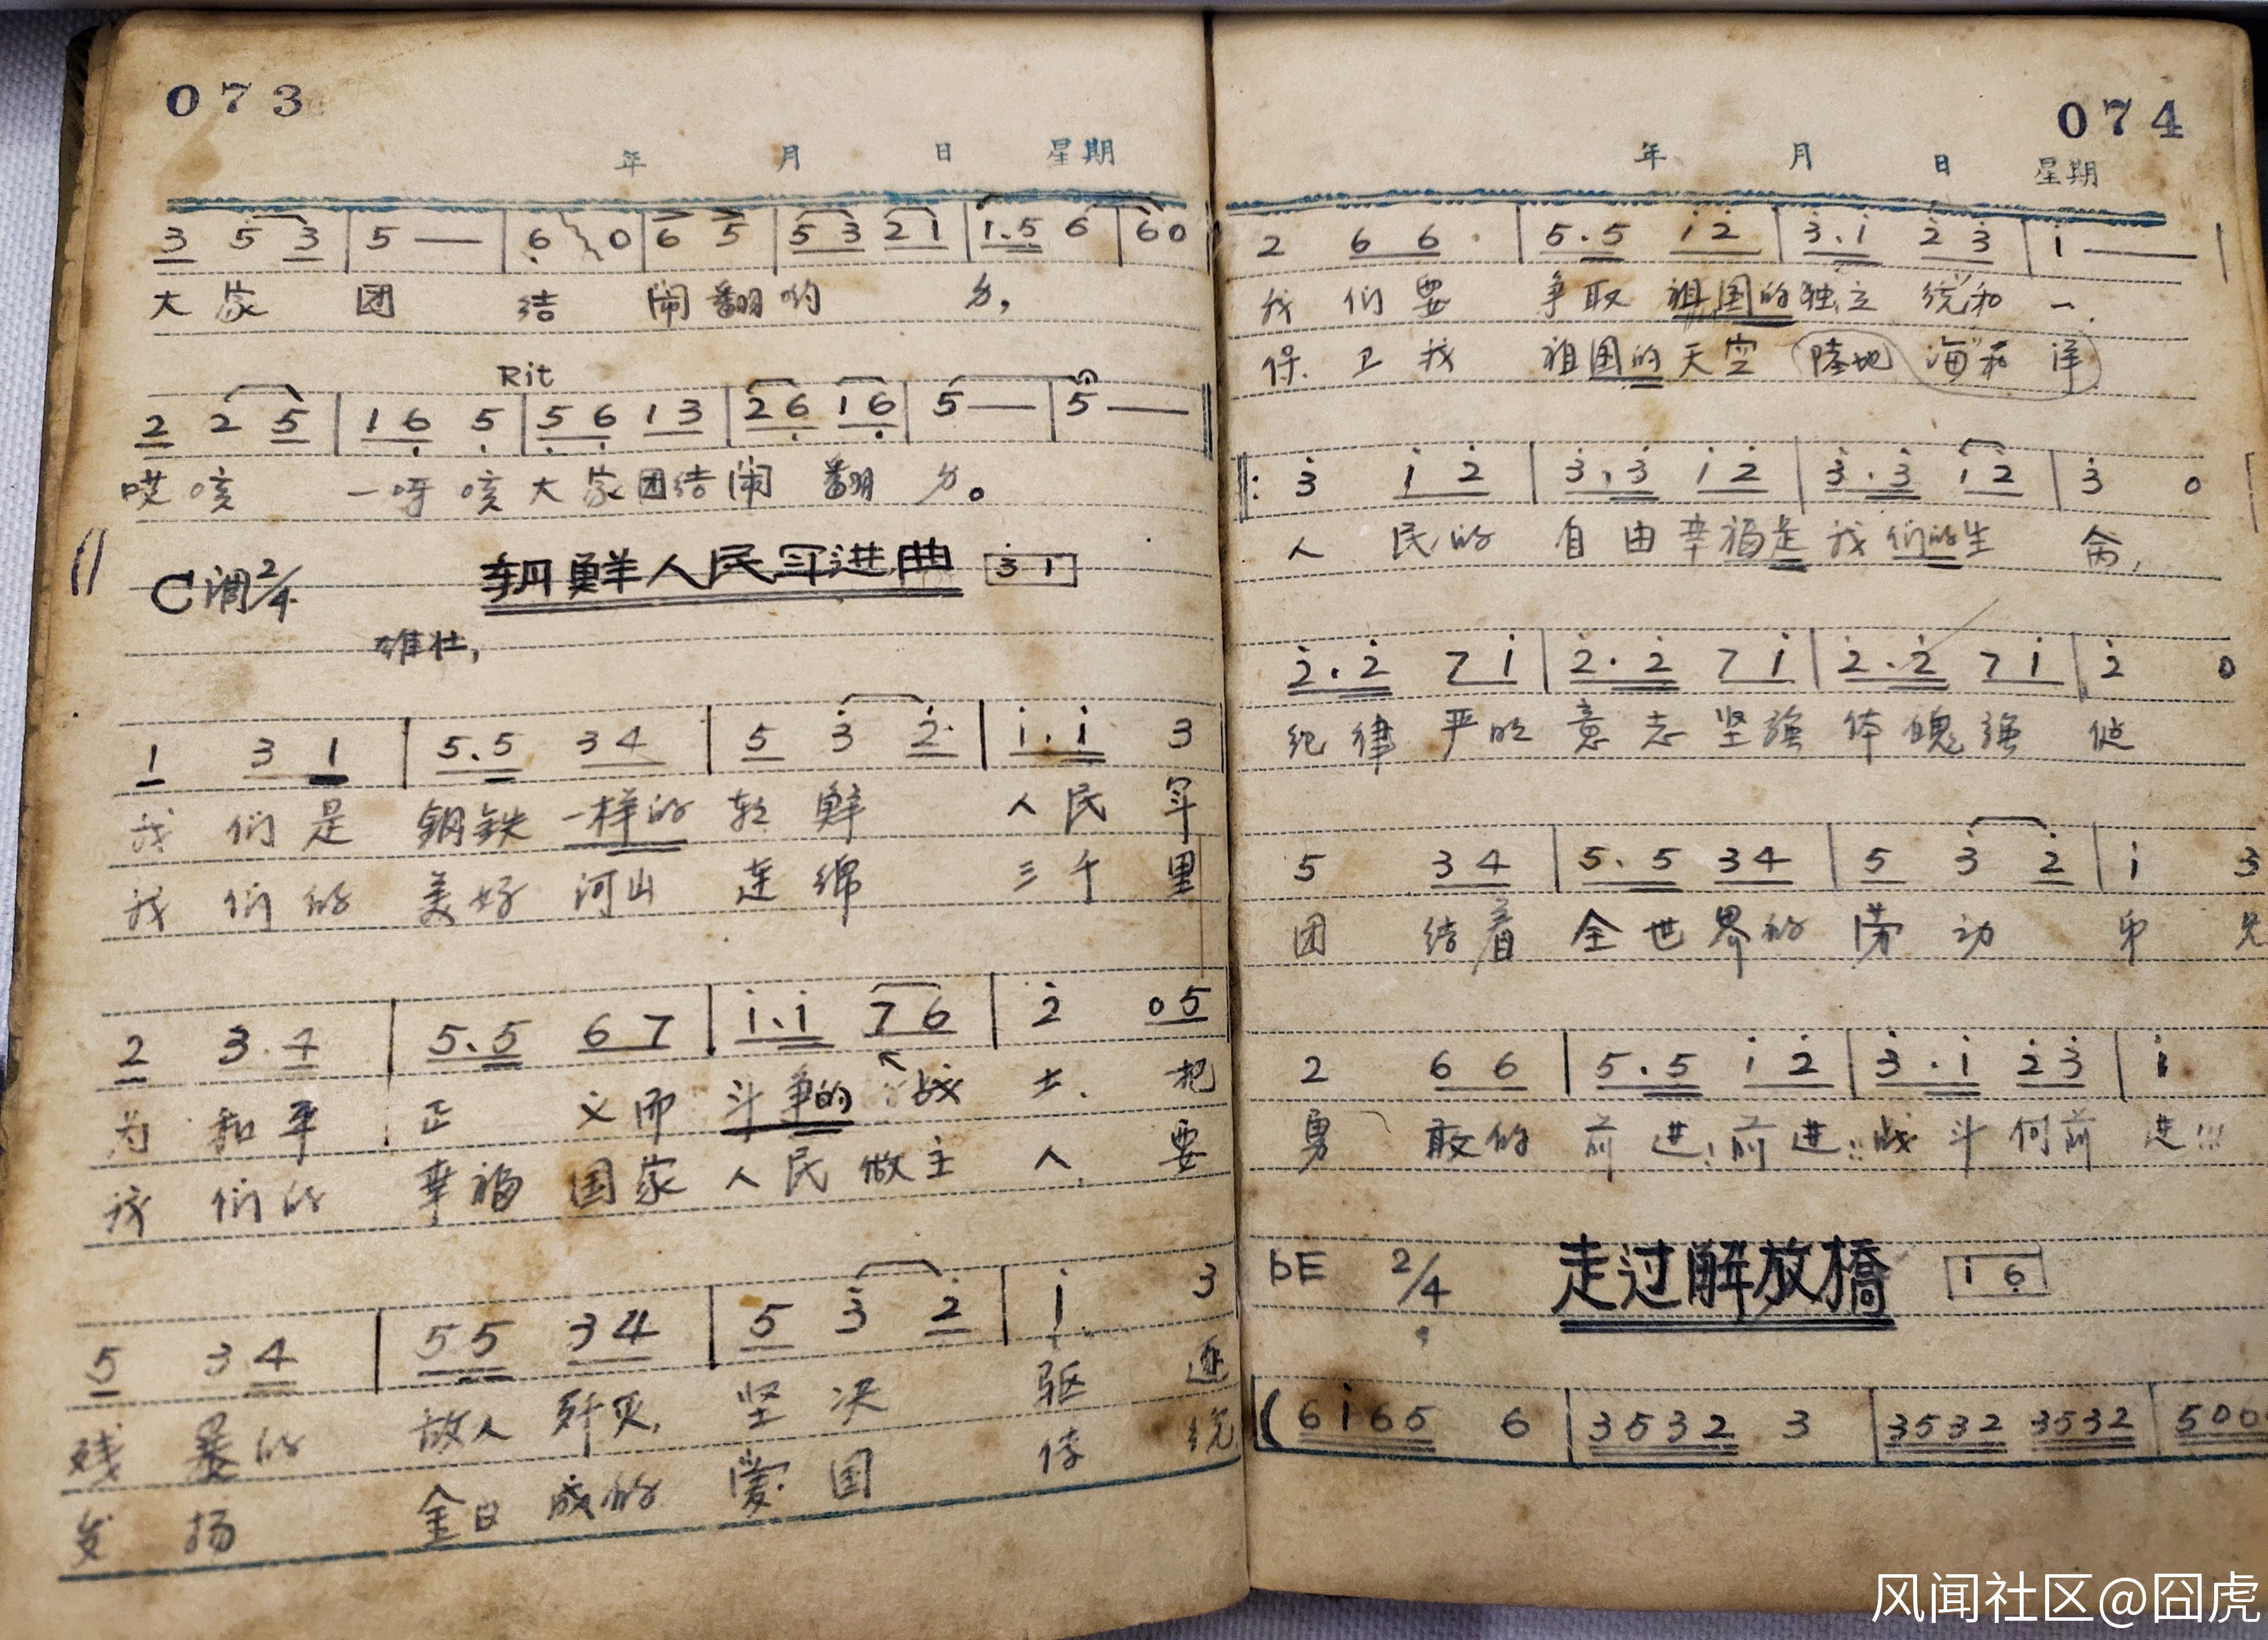 073
年 月 日 星期
3 5 3 | 5 — | 6 0 | 6 5 | 5 3 2 1 | 1.5 6 | 6 0
大家 团 结 闹翻哟 身,
Rit
2 2 5 | 1 6 5 | 5 6 1 3 | 2 6 1 6 | 5 — | 5 —
哎咳 一呀咳大家团结闹 翻 身。
C调2/4 朝鲜人民军进曲 3 1
雄壮,
1 3 1 | 5.5 3 4 | 5 3 2 | 1.1 3
我 们是 钢铁 一样的 朝 鲜 人民 军
我 们的 美好 河山 连 绵 三千 里
2 3.4 | 5.5 6 7 | 1.1 7 6 | 2 0 5
为 和平 正 义而 斗争的 战 士. 把
我 们的 幸福 国家 人民 做主 人, 要
5 3 4 | 5 5 3 4 | 5 3 2 | 1 3
残 暴的 敌人 歼灭, 坚 决 驱 逐
发 扬 金日 成的 爱 国 传 统
074
年 月 日 星期
2 6 6 | 5.5 1 2 | 3.1 2 3 | 1 — |
我 们要 争取 祖国的 独立 统和 一.
保 卫我 祖国的 天空 陸地 海和 洋
‖: 3 1 2 | 3.3 1 2 | 3.3 1 2 | 3 0
人 民的 自由 幸福是 我们的生 命,
2.2 7 1 | 2.2 7 1 | 2.2 7 1 | 2 0
纪律 严明 意志 坚强 体魄 强 健
5 3 4 | 5.5 3 4 | 5 3 2 | 1 3
团 结着 全世 界的 劳 动 弟 兄
2 6 6 | 5.5 1 2 | 3.1 2 3 | 1
勇 敢的 前进! 前进!! 战斗 向前 进!!!
bE 2/4 走过解放橋 1 6
( 6 1 6 5 6 | 3 5 3 2 3 | 3 5 3 2 3 5 3 2 | 5 0 6
风闻社区@囧虎